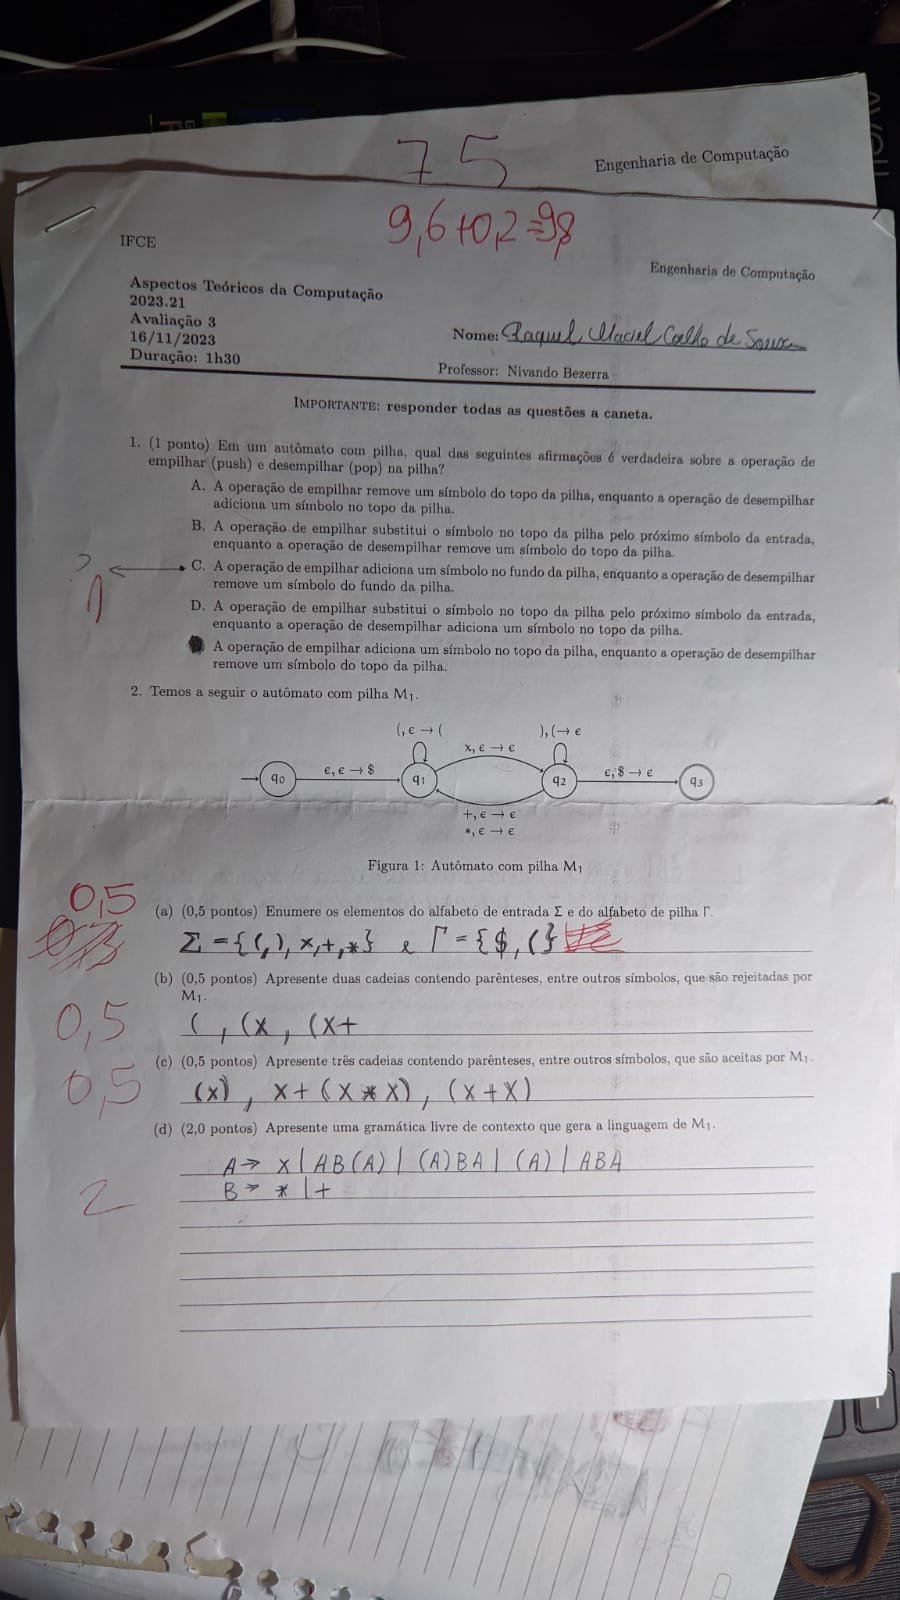 75
Engenharia de Computação
9,6+0,2=9,8
IFCE
Engenharia de Computação
Aspectos Teóricos da Computação
2023.21
Avaliação 3
16/11/2023
Duração: 1h30
Nome: Raquel Maciel Coelho de Sousa
Professor: Nivando Bezerra
IMPORTANTE: responder todas as questões a caneta.
1. (1 ponto) Em um autômato com pilha, qual das seguintes afirmações é verdadeira sobre a operação de
empilhar (push) e desempilhar (pop) na pilha?
A. A operação de empilhar remove um símbolo do topo da pilha, enquanto a operação de desempilhar
adiciona um símbolo no topo da pilha.
B. A operação de empilhar substitui o símbolo no topo da pilha pelo próximo símbolo da entrada,
enquanto a operação de desempilhar remove um símbolo do topo da pilha.
? C. A operação de empilhar adiciona um símbolo no fundo da pilha, enquanto a operação de desempilhar
1 remove um símbolo do fundo da pilha.
D. A operação de empilhar substitui o símbolo no topo da pilha pelo próximo símbolo da entrada,
enquanto a operação de desempilhar adiciona um símbolo no topo da pilha.
A operação de empilhar adiciona um símbolo no topo da pilha, enquanto a operação de desempilhar
remove um símbolo do topo da pilha.
2. Temos a seguir o autômato com pilha M₁.
(, ϵ → (
), (→ ϵ
x, ϵ → ϵ
q0
ϵ, ϵ → $
q1
q2
ϵ, $ → ϵ
q3
+, ϵ → ϵ
*, ϵ → ϵ
Figura 1: Autômato com pilha M₁
0,5
(a) (0,5 pontos) Enumere os elementos do alfabeto de entrada Σ e do alfabeto de pilha Γ.
Σ = {(,), x,+,*} e Γ = {$, (}
(b) (0,5 pontos) Apresente duas cadeias contendo parênteses, entre outros símbolos, que são rejeitadas por
M₁.
0,5 ( , (x , (x+
(c) (0,5 pontos) Apresente três cadeias contendo parênteses, entre outros símbolos, que são aceitas por M₁.
0,5 (x) , x+(x*x) , (x+x)
(d) (2,0 pontos) Apresente uma gramática livre de contexto que gera a linguagem de M₁.
A → x | AB(A) | (A)BA | (A) | ABA
2 B → * | +